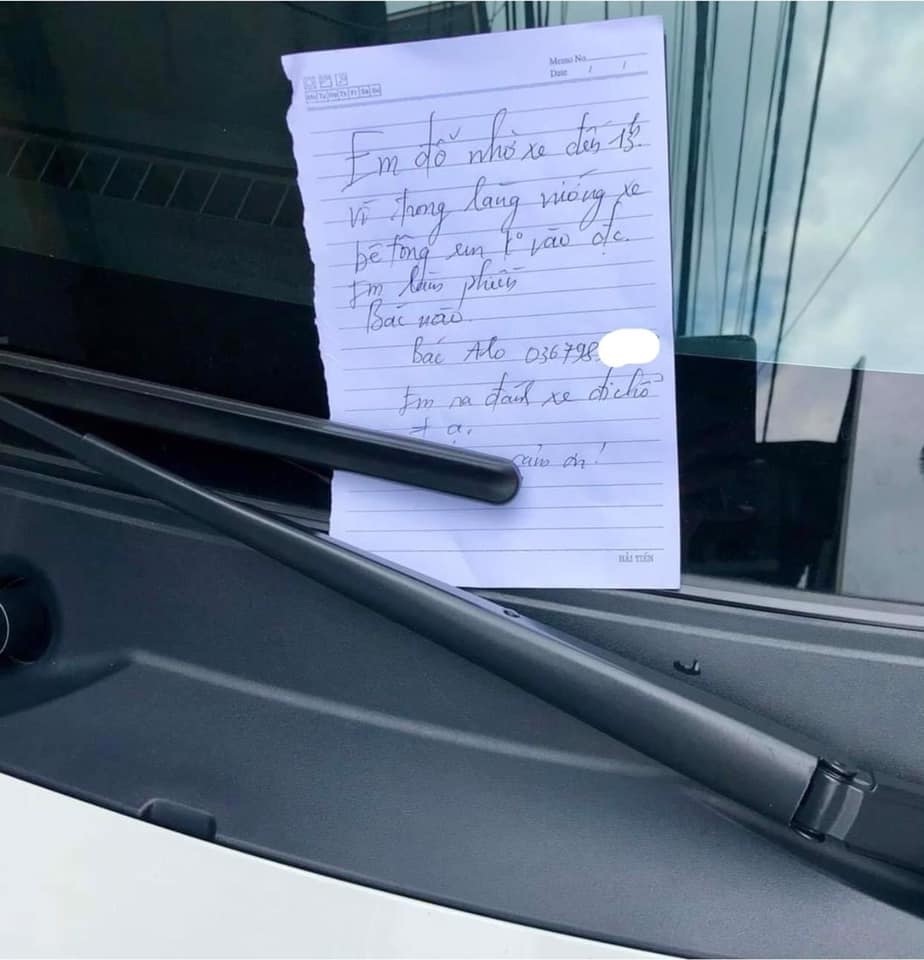 Memo No.
Date / /
Mo Tu We Th Fr Sa Su
Em đỗ nhờ xe đến 13h.
vì trong làng vướng xe
bê tông em k° vào đc.
Em làm phiền
Bác nào
Bác Alo 036798
Em ra đánh xe đi chỗ
≠ ạ.
cảm ơn!
HẢI TIẾN